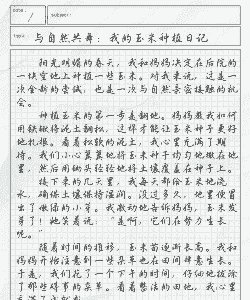 date: /
subject:
topic: 与自然共舞：我的玉米种植日记
阳光明媚的春天，我和妈妈决定在后院的
一块空地上种植一些玉米。对我来说，这是一
次全新的尝试，也是一次与自然亲密接触的机
会。
种植玉米的第一步是翻地。妈妈教我如何
用铁锹将泥土翻松，这样才能让玉米种子更好
地扎根。看着松软的泥土，我心里充满了期
待。我们小心翼翼地将玉米种子均匀地撒在地
里，然后用耙子轻轻地将土壤覆盖在种子上。
接下来的几天里，我每天都给玉米地浇
水，确保土壤保持湿润。没过多久，地里便冒
出了嫩绿的小芽。我激动地告诉妈妈，玉米发
芽了！她笑着说：“是啊，它们在努力生长
呢。”
随着时间的推移，玉米苗逐渐长高。我和
妈妈开始注意到一些杂草也在田间肆意生长。
于是，我们花了一个下午的时间，仔细地拔除
了那些碍事的杂草。看着整洁的田地，我心里